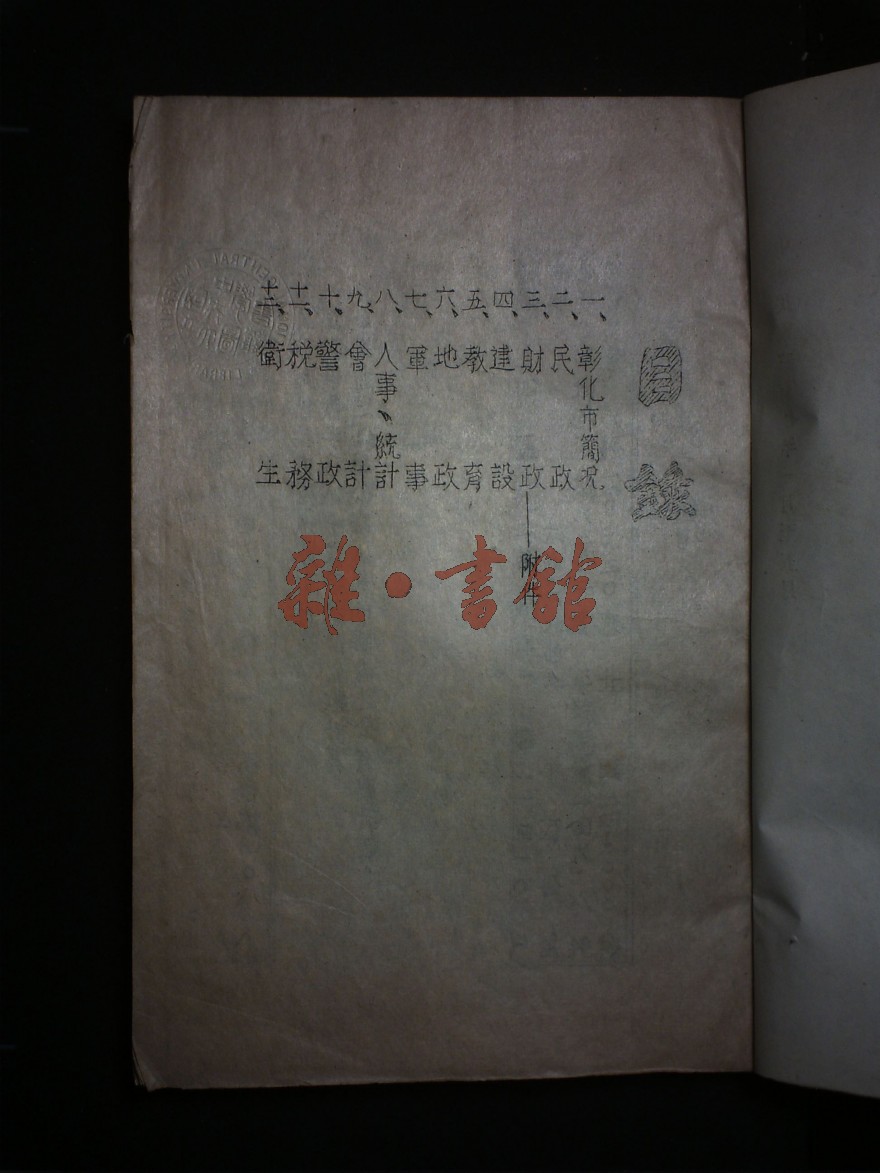 目錄
一、彰化市簡況
二、民政
三、財政——附件
四、建設
五、教育
六、地政
七、軍事
八、人事、統計
九、會計
十、警政
十一、税務
十二、衛生
雜·書館